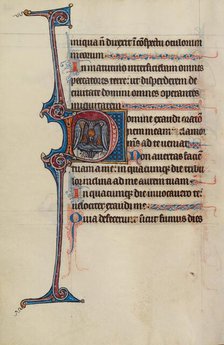 iniqua ñ direxit ĩ ↄspectu oculorum
meorum
In matutino interficiebam omnes
peccatores terre: ut disperderem de
ciuitate domini omnes operantes
iniquitatem
Domine exaudi oratio
nem meam: & clamor
meus ad te ueniat
Non auertas faciem
tuam a me: in quacumque die tribu
lor inclina ad me aurem tuam
In quacumque die inuocauero te:
uelociter exaudi me
Quia defecerunt sicut fumus dies